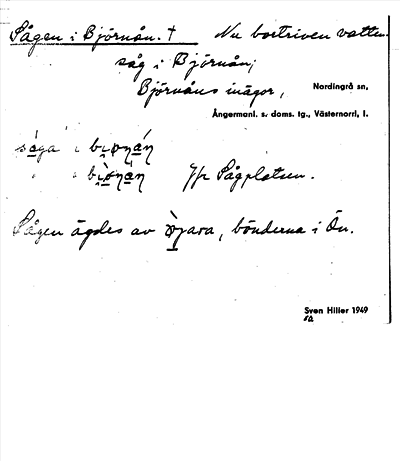 Sågen i Björnån. † Nu bortriven vatten-
såg i Björnån;
Björnåns inägor,
Nordingrå sn,
Ångermanl. s. doms. tg., Västernorrl. l.
sága i
" i Jfr Sågplatsen.
Sågen ägdes av bönderna i Ön.
Sven Hiller 1949